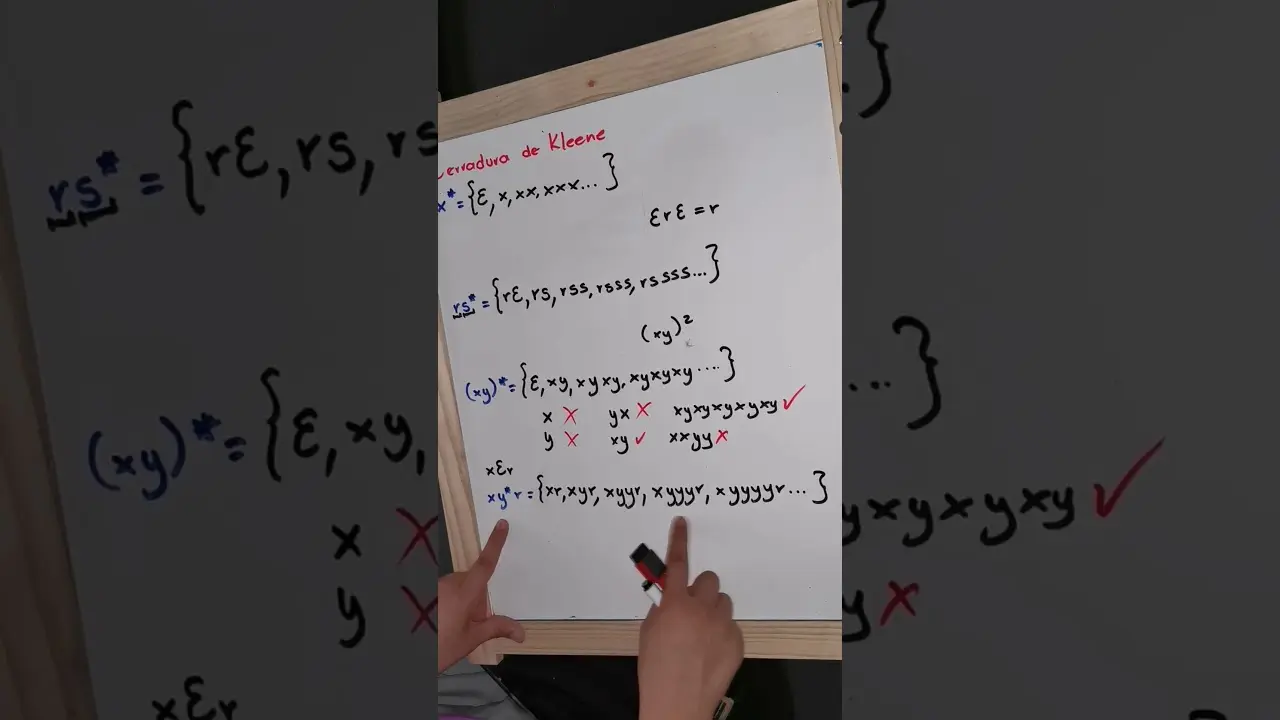 Cerradura de Kleene
x* = {ε, x, xx, xxx... }
ε r ε = r
rs* = {rε, rs, rss, rsss, rssss... }
(xy)²
(xy)* = {ε, xy, xyxy, xyxyxy .... }
x ✗ yx ✗ xyxyxyxyxy ✓
y ✗ xy ✓ xxyy ✗
xεr
xy*r = {xr, xyr, xyyr, xyyyr, xyyyyr ... }